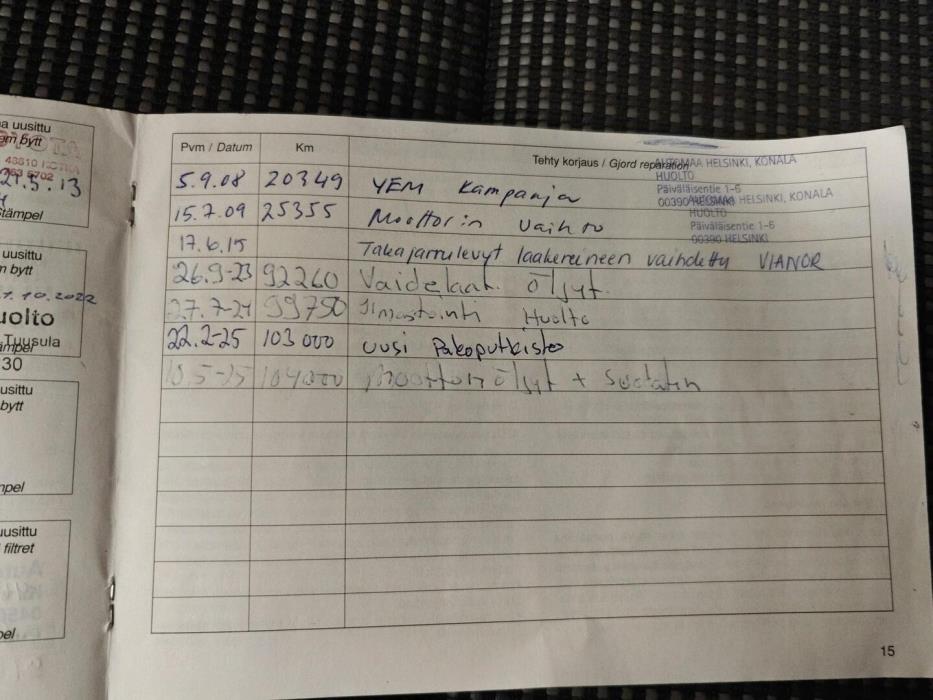 a uusittu
am bytt
48610 KOTKA
763 5702
21.5.13
Stämpel
uusittu
n bytt
1.10.2022
uolto
Tuusula
ämpel
30
usittu
bytt
mpel
uusittu
filtret
pel
Pvm / Datum Km Tehty korjaus / Gjord reparation
AUTOMAA HELSINKI, KONALA
HUOLTO
Päiväläisentie 1-6
00390 HELSINKI
5.9.08 20349 YEM Kampanja
AUTOMAA HELSINKI, KONALA
HUOLTO
Päiväläisentie 1-6
00390 HELSINKI
15.7.09 25355 Moottorin vaihto
17.6.15 Takajarrulevyt laakereineen vaihdettu VIANOR
26.9-23 92260 Vaidelaat. öljyt.
27.7-24 99750 Ilmastointi Huolto
22.2-25 103000 uusi Pakoputkisto
10.5-25 104000 Moottori öljyt + Suodatin
15